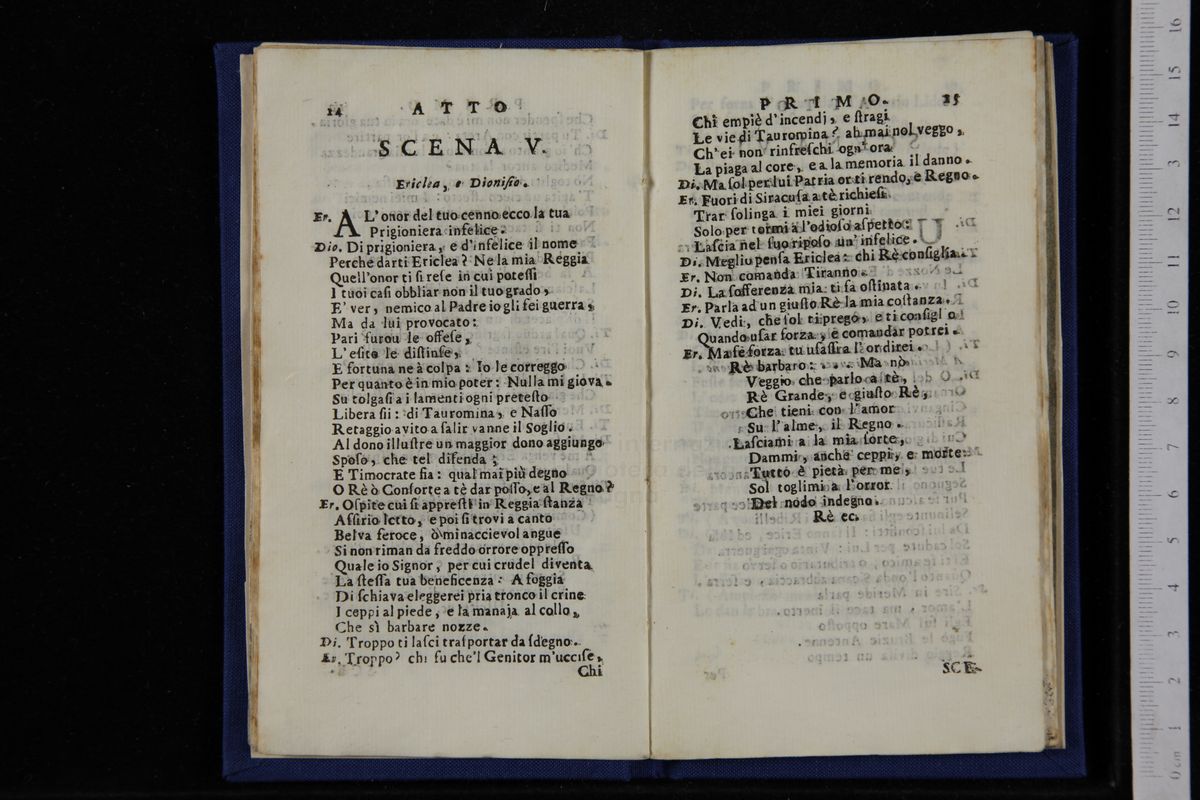 24 ATTO
SCENA V.
Ericlea, e Dionisio.
Er. AL'onor del tuo cenno ecco la tua
Prigioniera infelice.
Dio. Di prigioniera, e d'infelice il nome
Perche darti Ericlea? Ne la mia Reggia
Quell'onor ti si rese in cui potessi
I tuoi casi obbliar non il tuo grado,
E' ver, nemico al Padre io gli fei guerra,
Ma da lui provocato:
Pari furou le offese,
L'esito le distinse,
E fortuna ne à colpa: Io le correggo
Per quanto è in mio poter: Nulla mi giova.
Su tolgasi a i lamenti ogni pretesto
Libera sii: di Tauromina, e Nasso
Retaggio avito a salir vanne il Soglio.
Al dono illustre un maggior dono aggiungo
Sposo, che tel difenda;
E Timocrate sia: qual mai più degno
O Rè ò Consorte a tè dar posso, e al Regno?
Er. Ospite cui si appresti in Reggia stanza
Assirio letto, e poi si trovi a canto
Belva feroce, ò minaccievol angue
Si non riman da freddo orrore oppresso
Quale io Signor, per cui crudel diventa
La stessa tua beneficenza: A foggia
Di schiava eleggerei pria tronco il crine
I ceppi al piede, e la manaja al collo,
Che sì barbare nozze.
Di. Troppo ti lasci trasportar da sdegno.
Er. Troppo? chi fu che'l Genitor m'uccise,
Chi
PRIMO. 25
Chi empiè d'incendj, e stragi
Le vie di Tauromina? ah mai nol veggo,
Ch'ei non rinfreschi ogn'ora
La piaga al core, e a la memoria il danno.
Di. Ma sol per lui Patria or ti rendo, e Regno.
Er. Fuori di Siracusa a tè richiesi
Trar solinga i miei giorni
Solo per tormi a l'odioso aspetto:
Lascia nel suo riposo un'infelice.
Di. Meglio pensa Ericlea: chi Rè consiglia.
Er. Non comanda Tiranno.
Di. La sofferenza mia ti fa ostinata.
Er. Parla ad un giusto Rè la mia costanza.
Di. Vedi, che sol ti prego, e ti consigl o
Quando usar forza, e comandar potrei.
Er. Ma se forza tu usassi a l'or direi.
Rè barbaro: . . . Ma nò
Veggio che parlo a tè,
Rè Grande, e giusto Rè,
Che tieni con l'amor
Su l'alme, il Regno.
Lasciami a la mia sorte,
Dammi, anche ceppi, e morte
Tutto è pietà per me,
Sol toglimi a l'orror
Del nodo indegno.
Rè ec.
SCE-